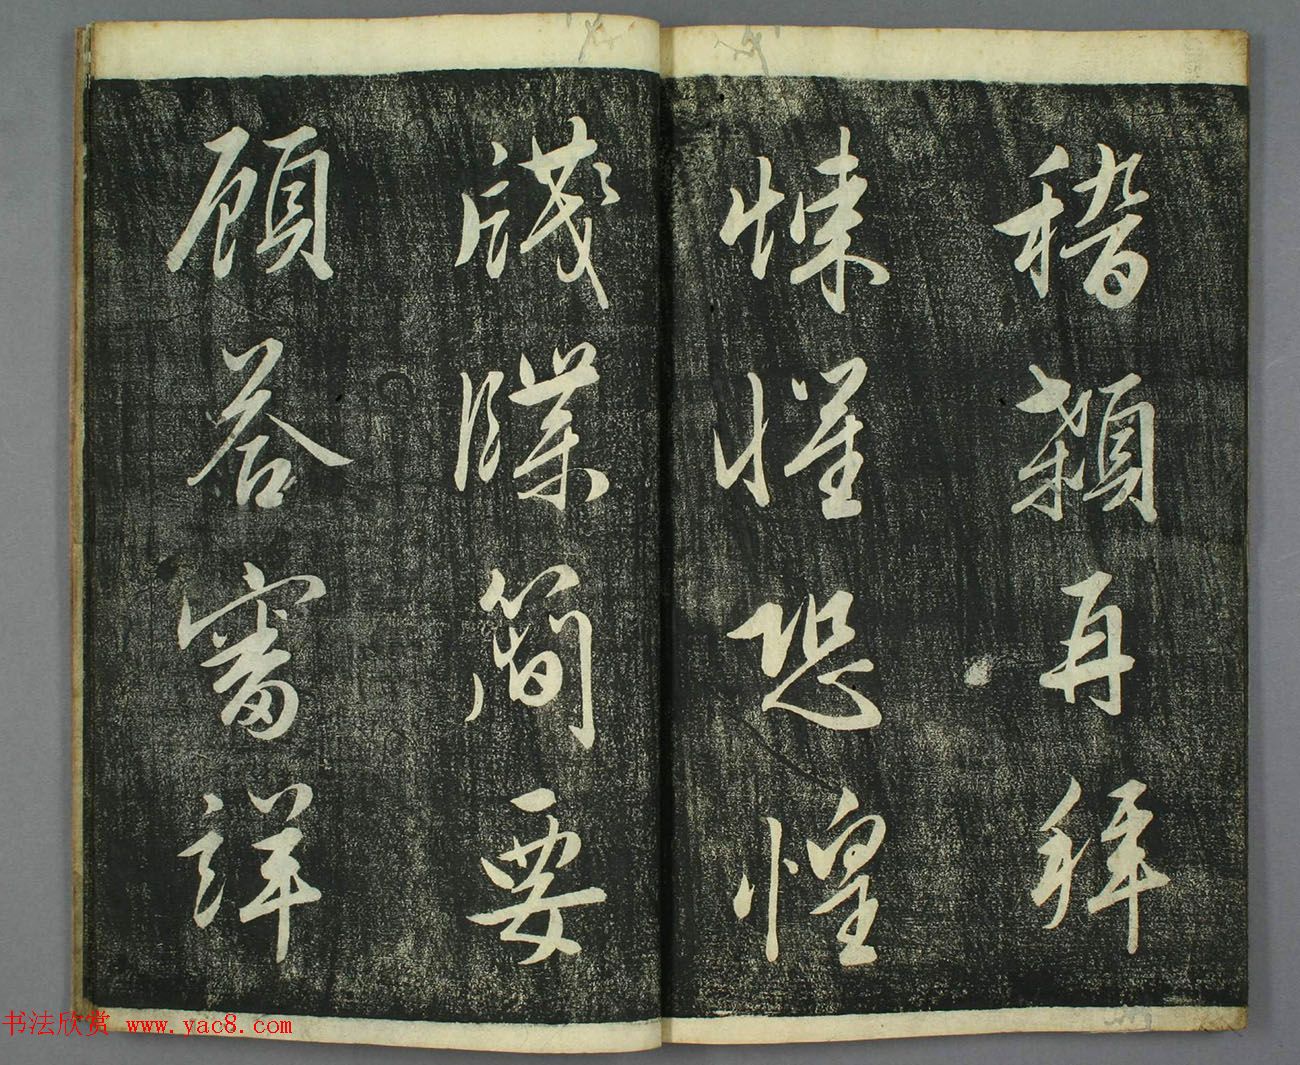 稽顙再拜
悚懼恐惶
牋牒簡要
顧荅審詳
书法欣赏 www.yac8.com